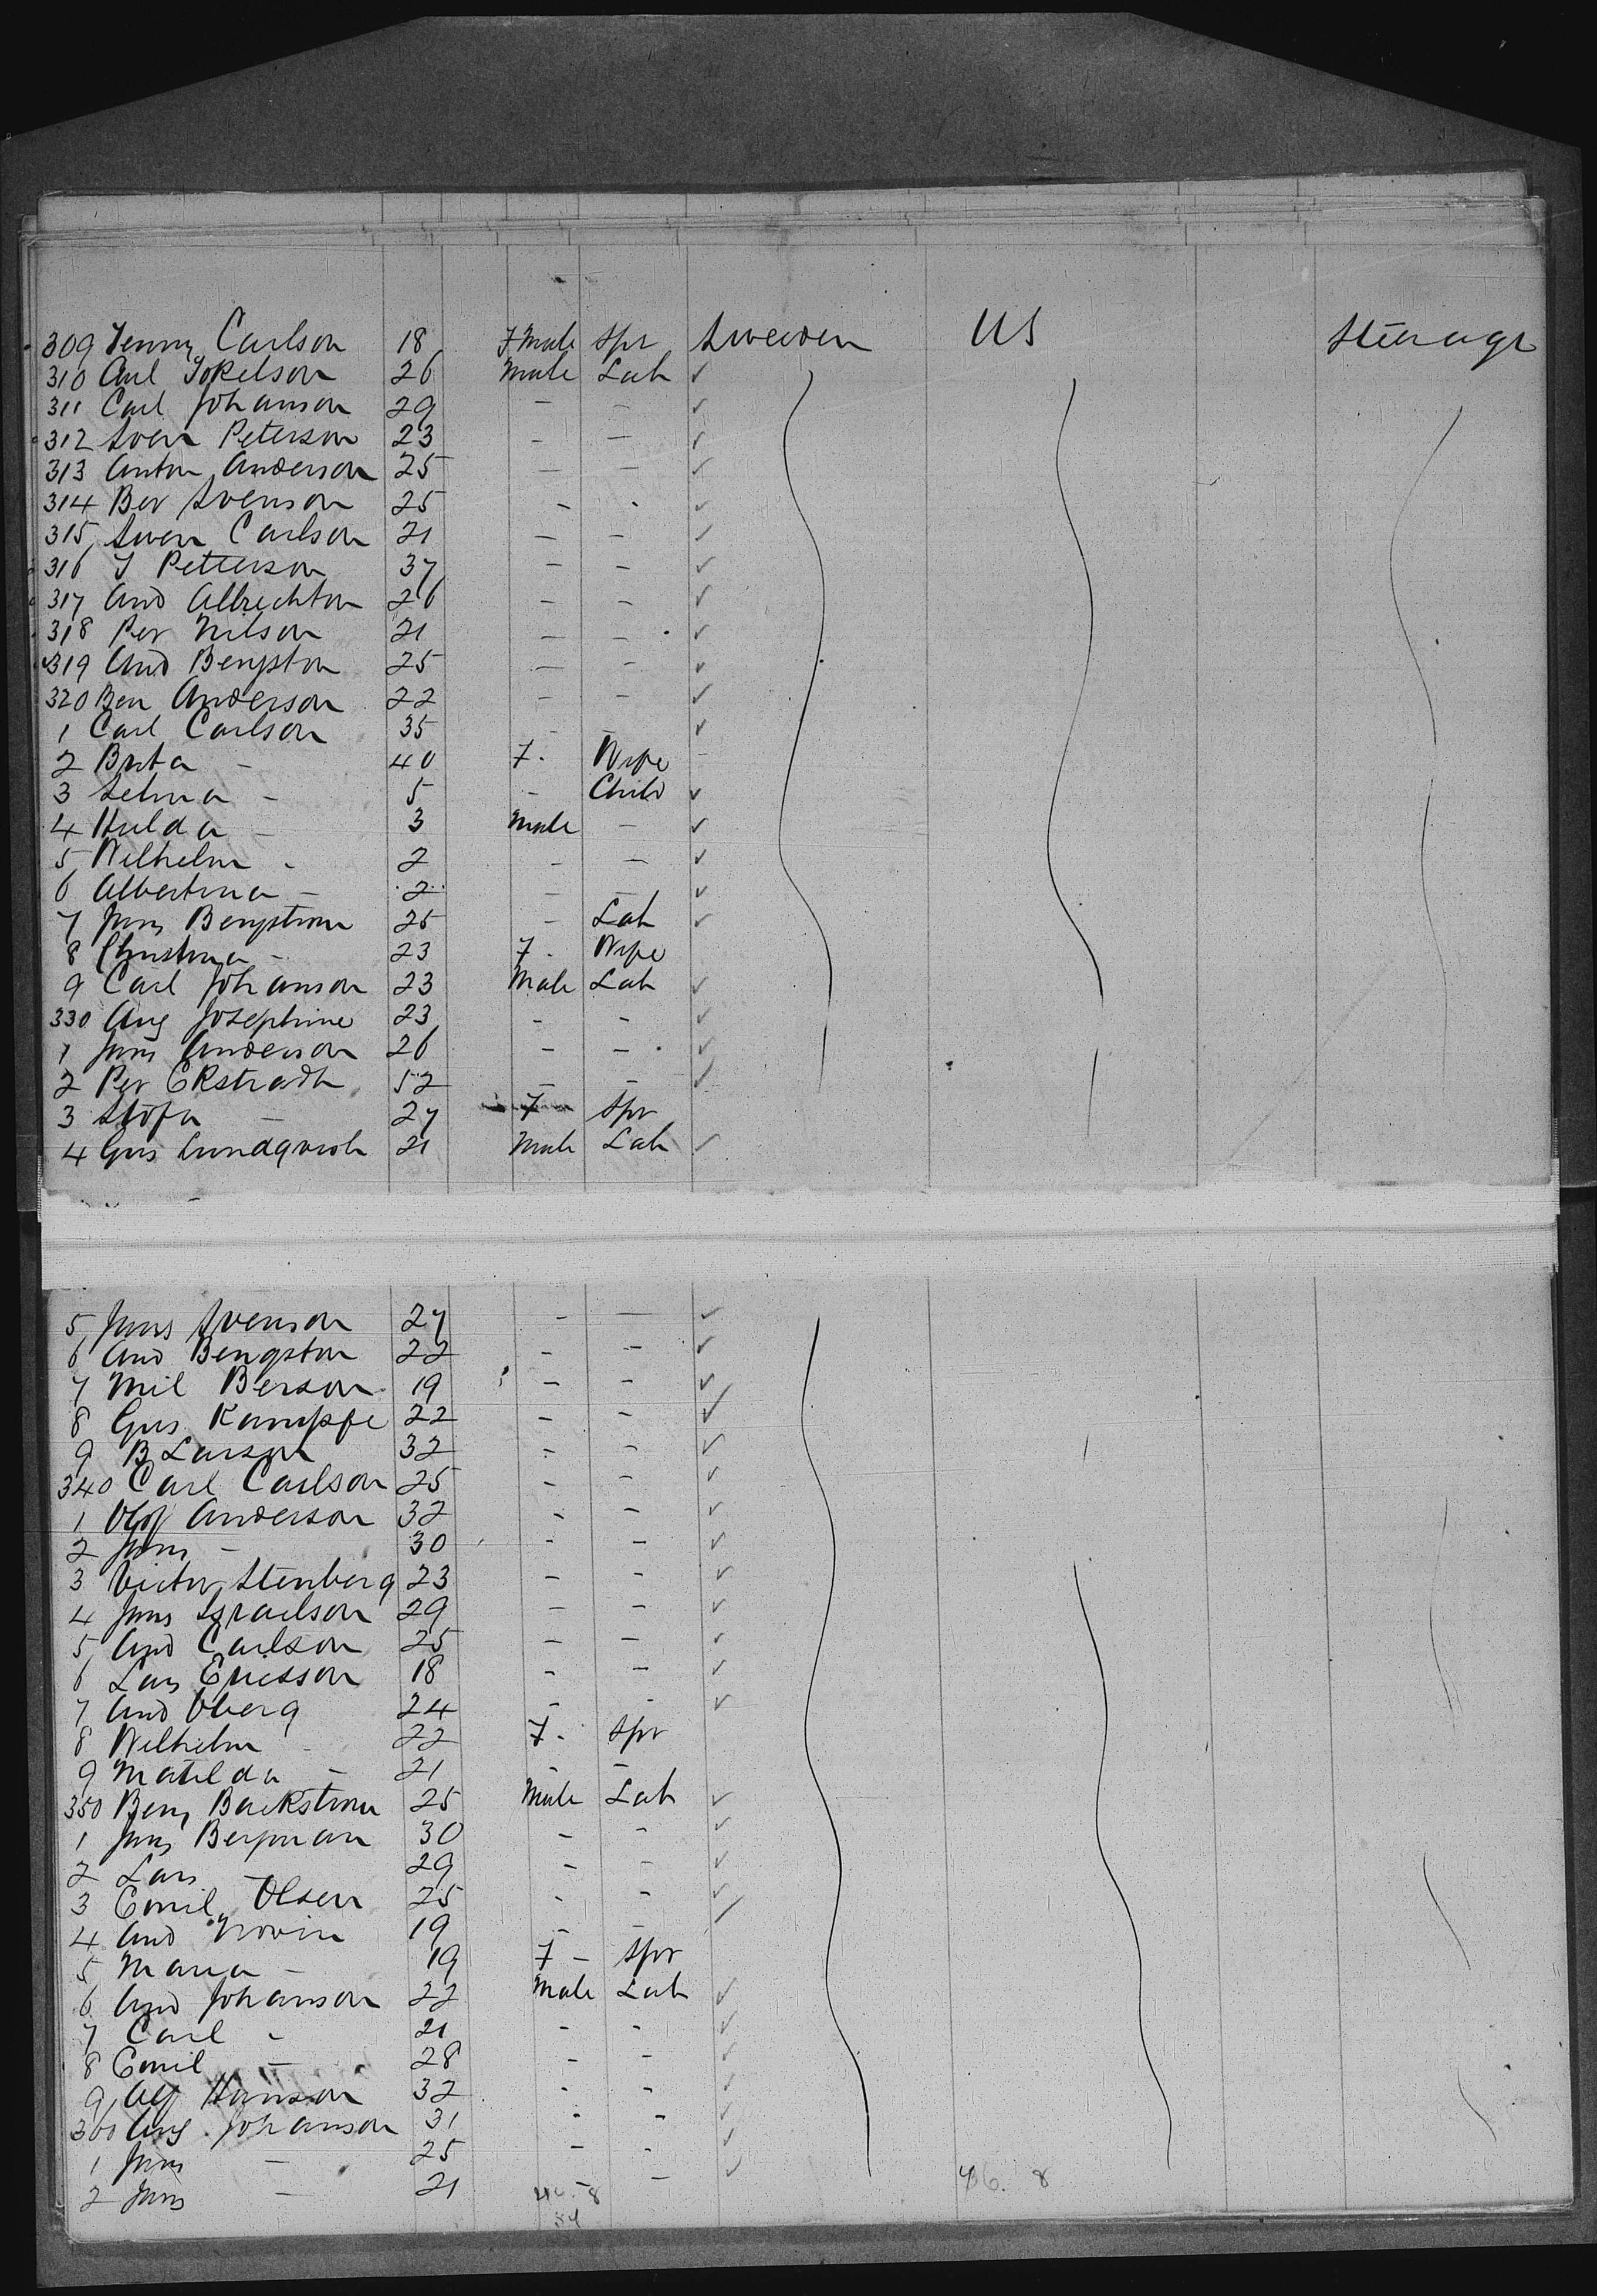 309 Jenny Carlson 18 F Male Spr Sweden US Steerage
310 Carl Jokelson 26 Male Lab ✓
311 Carl Johanson 29 - - ✓
312 Sven Peterson 23 - - ✓
313 Anton Anderson 25 - - ✓
314 Ber Svenson 25 - - ✓
315 Sven Carlson 21 - - ✓
316 J Petterson 37 - - ✓
317 And Albrechton 26 - - ✓
318 Per Nilson 21 - - ✓
319 And Bengston 25 - - ✓
320 Ben Anderson 22 - - ✓
1 Carl Carlson 35 - - ✓
2 Brita - 40 F. Wife -
3 Selma - 5 - Child ✓
4 Hulda - 3 Male - ✓
5 Wilhelm - 2 - - ✓
6 Albertina - 2 - - ✓
7 Jans Bengstrom 25 - Lab ✓
8 Christina - 23 F. Wife
9 Carl Johanson 23 Male Lab ✓
330 Aug Josephine 23 - - ✓
1 Jans Anderson 26 - - ✓
2 Per Ekstradh 52 - - ✓
3 Stofa - 27 F Spr
4 Gus Lundqvist 21 Male Lab ✓
5 Jans Svenson 27 - - ✓
6 And Bengston 22 - - ✓
7 Mil Berson 19 - - ✓
8 Gus Kampfe 22 - - ✓
9 B Larson 32 - - ✓
340 Carl Carlson 25 - - ✓
1 Olof Anderson 32 - - ✓
2 Jans - 30 - - ✓
3 Victor Stenberg 23 - - ✓
4 Jans Israelson 29 - - ✓
5 And Carlson 25 - - ✓
6 Lars Ericsson 18 - - ✓
7 And Oberg 24 - - ✓
8 Wilhelm - 22 F. Spr
9 Matilda - 21 - -
350 Benj Backstrom 25 Male Lab ✓
1 Jans Bergman 30 - - ✓
2 Lars - 29 - - ✓
3 Emil Olsen 25 - - ✓
4 And Norin 19 - - ✓
5 Maria - 19 F - Spr
6 And Johanson 22 Male Lab ✓
7 Carl - 21 - - ✓
8 Emil - 28 - - ✓
9 Alf Hanson 32 - - ✓
360 Aug Johanson 31 - - ✓
1 Jans - 25 - - ✓
2 Jans - 21 - - ✓